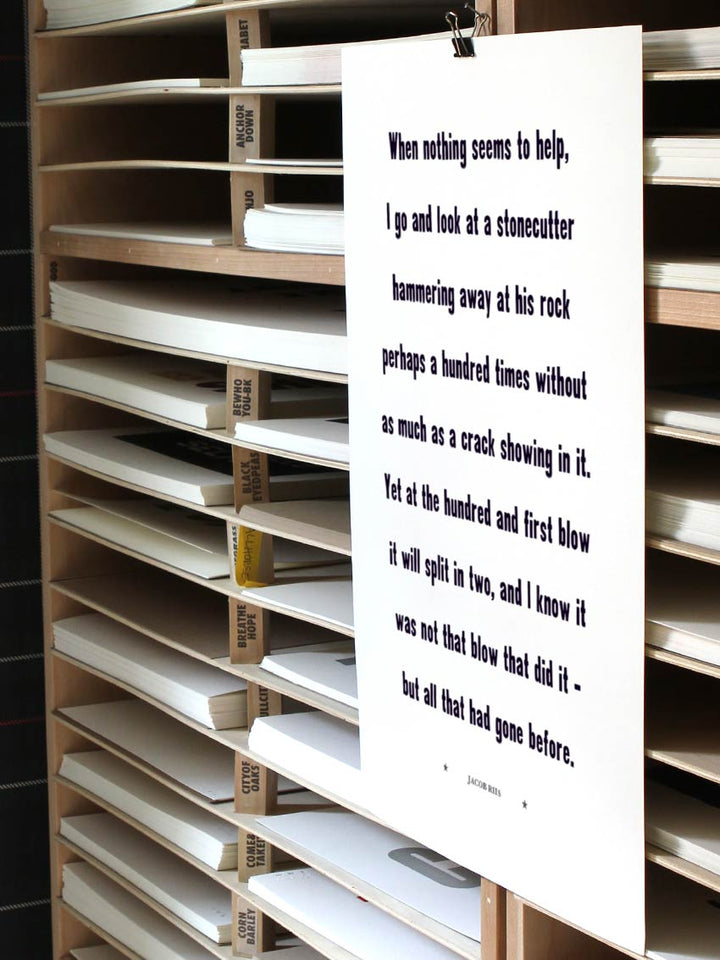 When nothing seems to help,
I go and look at a stonecutter
hammering away at his rock
perhaps a hundred times without
as much as a crack showing in it.
Yet at the hundred and first blow
it will split in two, and I know it
was not that blow that did it -
but all that had gone before.
JACOB RIIS
ANCHOR
DOWN
BEWHO
YOU-BK
BLACK
EYEDPEAS
BREATHE
HOPE
CITYOF
OAKS
COME&
TAKEIT
CORN
BARLEY